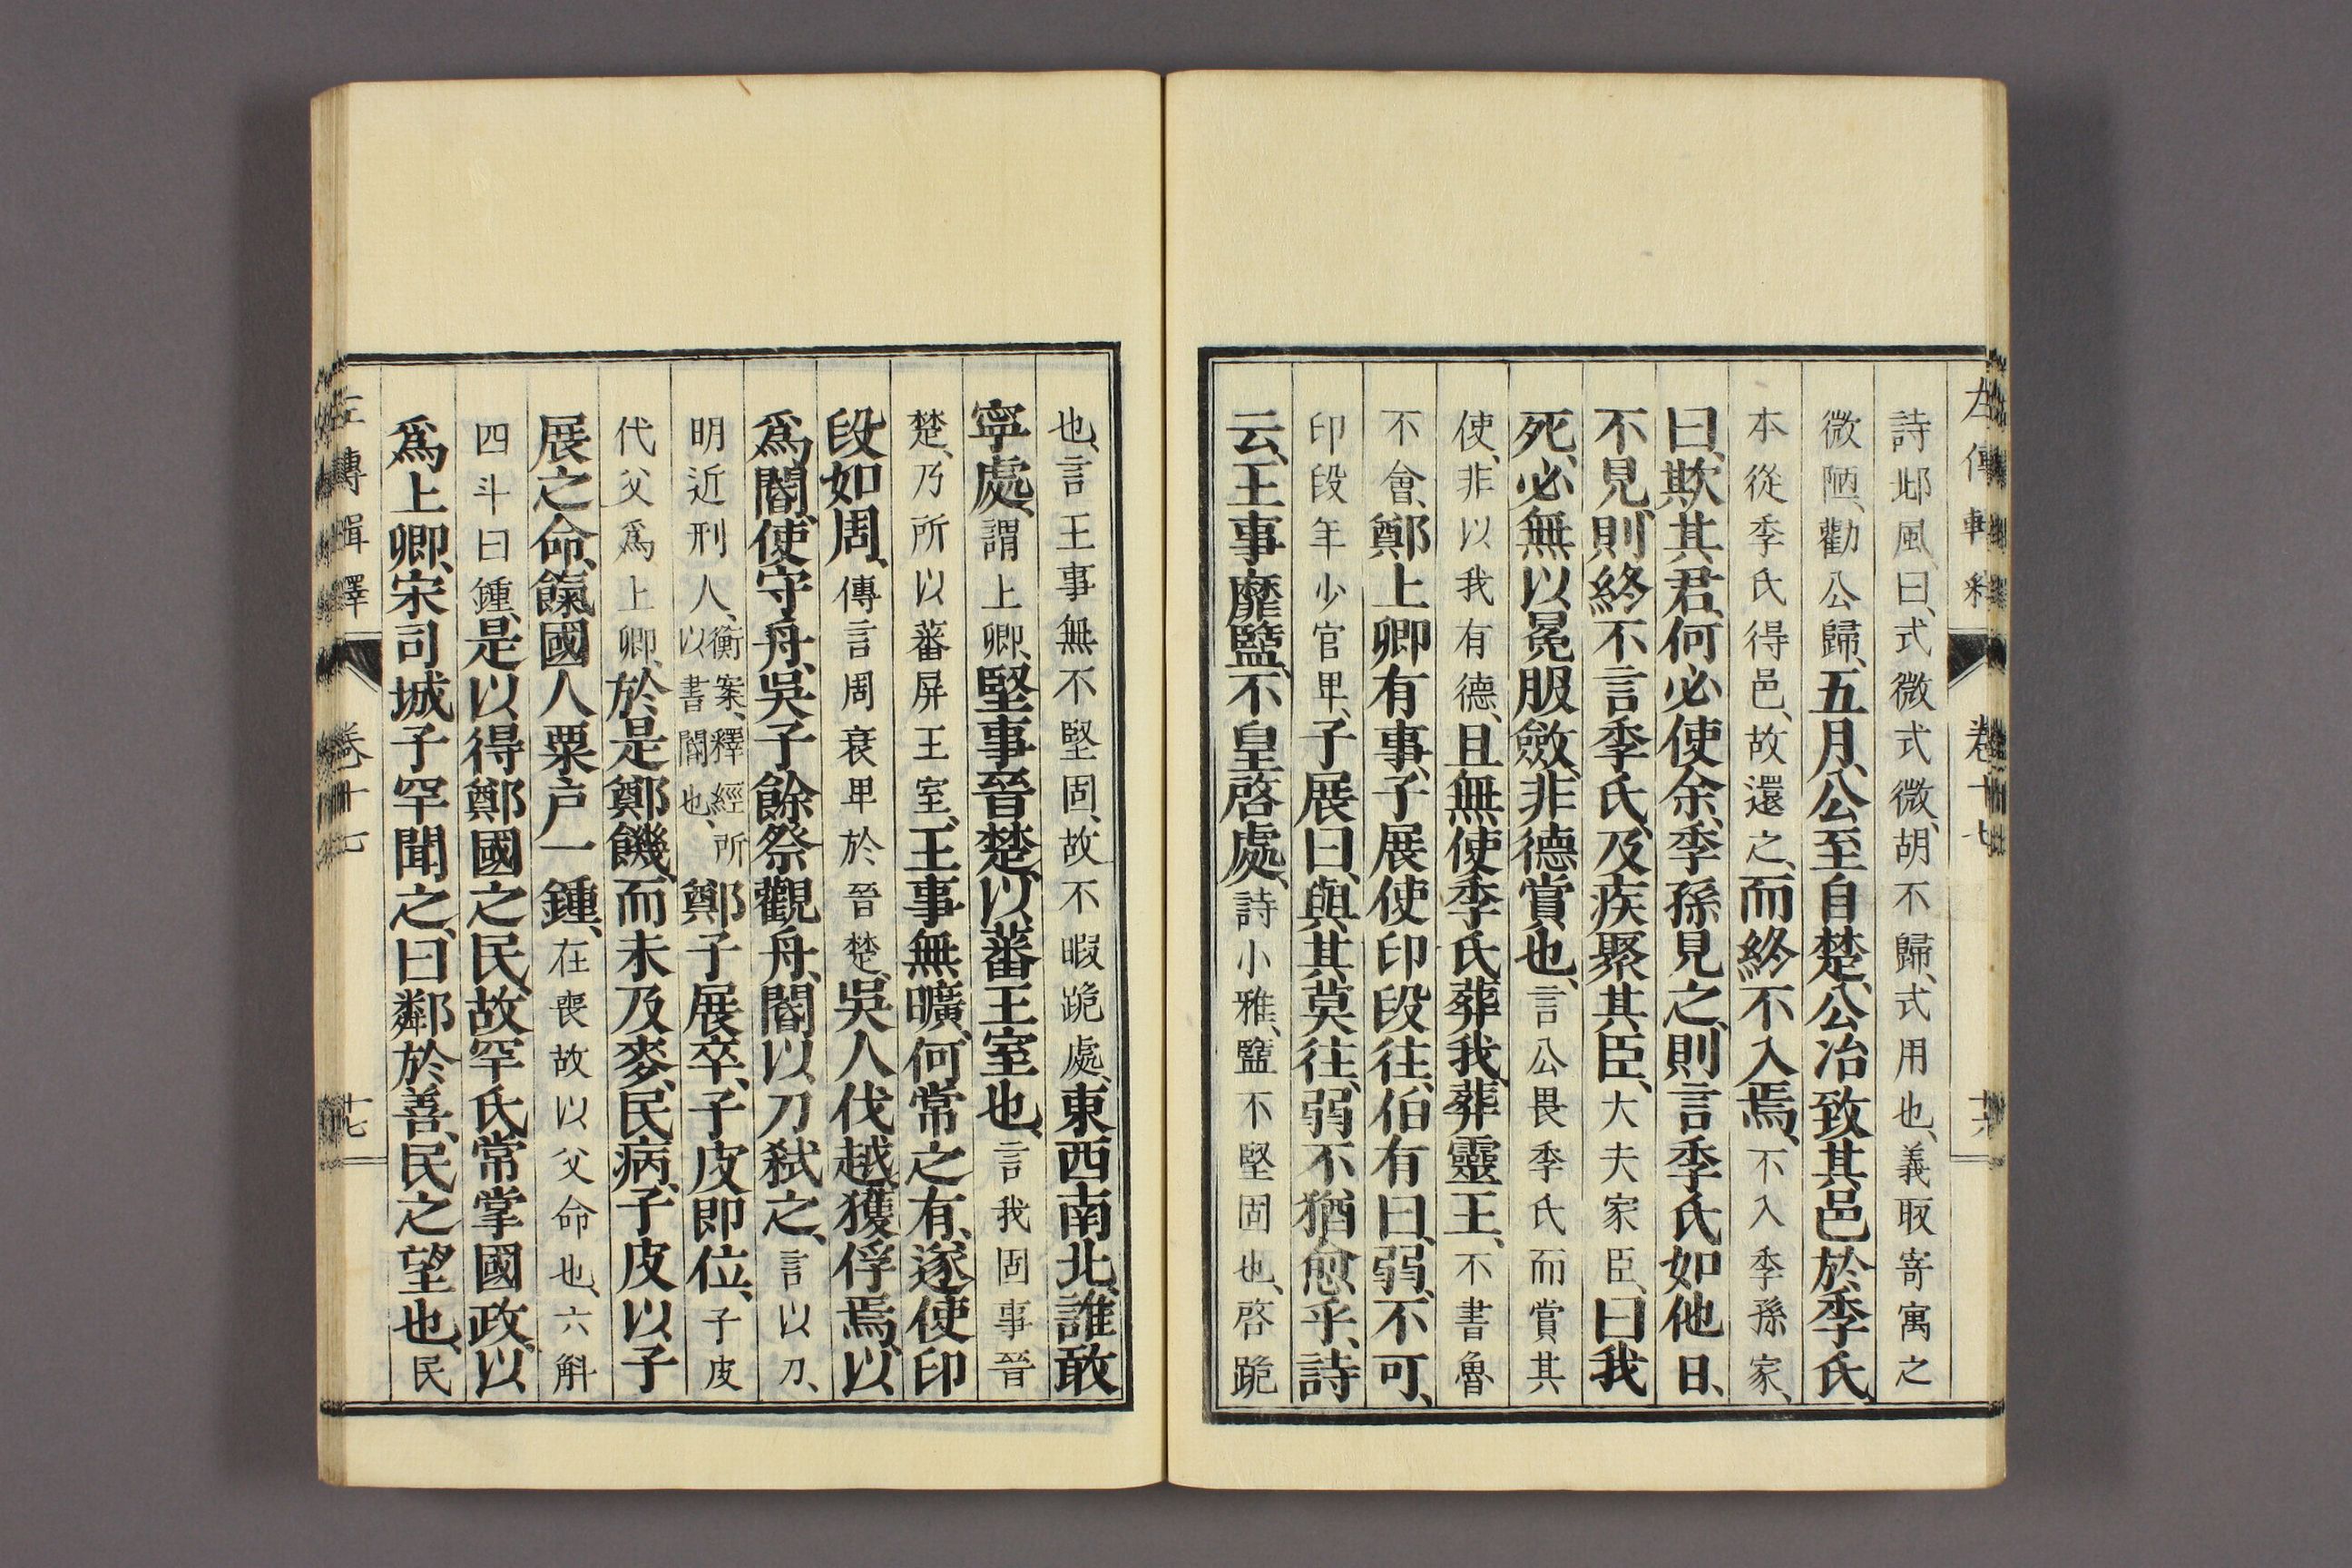 左傳輯釋 卷十七 十六
詩邶風、曰、式微式微、胡不歸、式用也、義取寄寓之
微陋、勸公歸、五月、公至自楚、公冶致其邑於季氏、
本從季氏得邑、故還之、而終不入焉、不入季孫家、
曰、欺其君、何必使余、季孫見之、則言季氏如他日、
不見、則終不言季氏、及疾聚其臣、大夫家臣、曰我
死、必無以冕服斂、非德賞也、言公畏季氏而賞其
使、非以我有德、且無使季氏葬我、葬靈王、不書魯
不會、鄭上卿有事、子展使印段往、伯有曰、弱、不可、
印段年少官卑、子展曰、與其莫往、弱不猶愈乎、詩
云、王事靡盬、不皇啓處、詩小雅、盬不堅固也、啓跪
也、言王事無不堅固、故不暇跪處、東西南北、誰敢
寧處、謂上卿、堅事晉楚、以蕃王室也、言我固事晉
楚、乃所以蕃屏王室、王事無曠、何常之有、遂使印
段如周、傳言周衰卑於晉楚、吳人伐越、獲俘焉、以
爲閽、使守舟、吳子餘祭觀舟、閽以刀弑之、言以刀、
明近刑人、衡案、釋經所以書閽也、鄭子展卒、子皮即位、子皮
代父爲上卿、於是鄭饑、而未及麥、民病、子皮以子
展之命、餼國人粟戶一鍾、在喪故以父命也、六斛
四斗曰鍾、是以得鄭國之民、故罕氏常掌國政、以
爲上卿、宋司城子罕聞之、曰鄰於善、民之望也、民
左傳輯釋 卷十七 十七